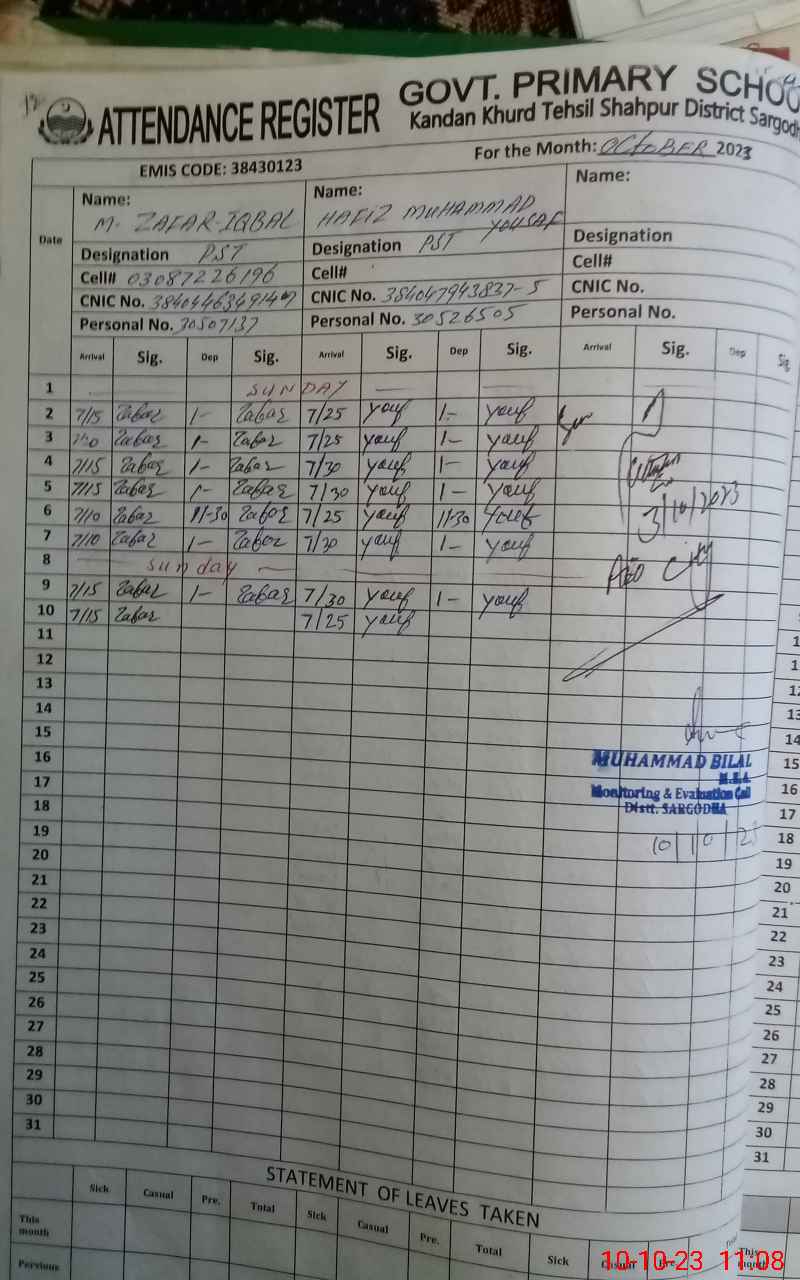 ATTENDANCE REGISTER
GOVT. PRIMARY SCHOO
Kandan Khurd Tehsil Shahpur District Sargodh
EMIS CODE: 38430123
For the Month: OCTOBER 2023
Date
Name: M. ZAFAR-IQBAL
Name: HAFIZ MUHAMMAD YOUSAF
Name:
Designation PST
Designation PST
Designation
Cell# 03087226196
Cell#
Cell#
CNIC No.
CNIC No. 384047943837-5
CNIC No.
Personal No. 30507137
Personal No. 30526505
Personal No.
Arrival Sig. Dep Sig. Arrival Sig. Dep Sig. Arrival Sig. Dep Sig
1 SUNDAY
2 7/15 Zafar 1- Zafar 7/25 youf 1- youf
3 Zafar 1- Zafar 7/25 youf 1- youf
4 7/15 Zafar 1- Zafar 7/30 youf 1- youf
5 7/15 Zafar 1- Zafar 7/30 youf 1- youf
6 7/10 Zafar 11-30 Zafar 7/25 youf 11-30 youf
3/10/2023
7 7/10 Zafar 1- Zafar 7/30 youf 1- youf
8 sunday
9 7/15 Zafar 1- Zafar 7/30 youf 1- youf
10 7/15 Zafar 7/25 youf
11
12
13
14
15
16
17
18
19
20
21
22
23
24
25
26
27
28
29
30
31
MUHAMMAD BILAL
M.E.A.
Monitoring & Evaluation Cell
Distt. SARGODHA
10/10/23
12
13
14
15
16
17
18
19
20
21
22
23
24
25
26
27
28
29
30
31
STATEMENT OF LEAVES TAKEN
Sick Casual Pre. Total Sick Casual Pre. Total Sick Casual Pre
This month
This month
Pervious
10-10-23 11:08